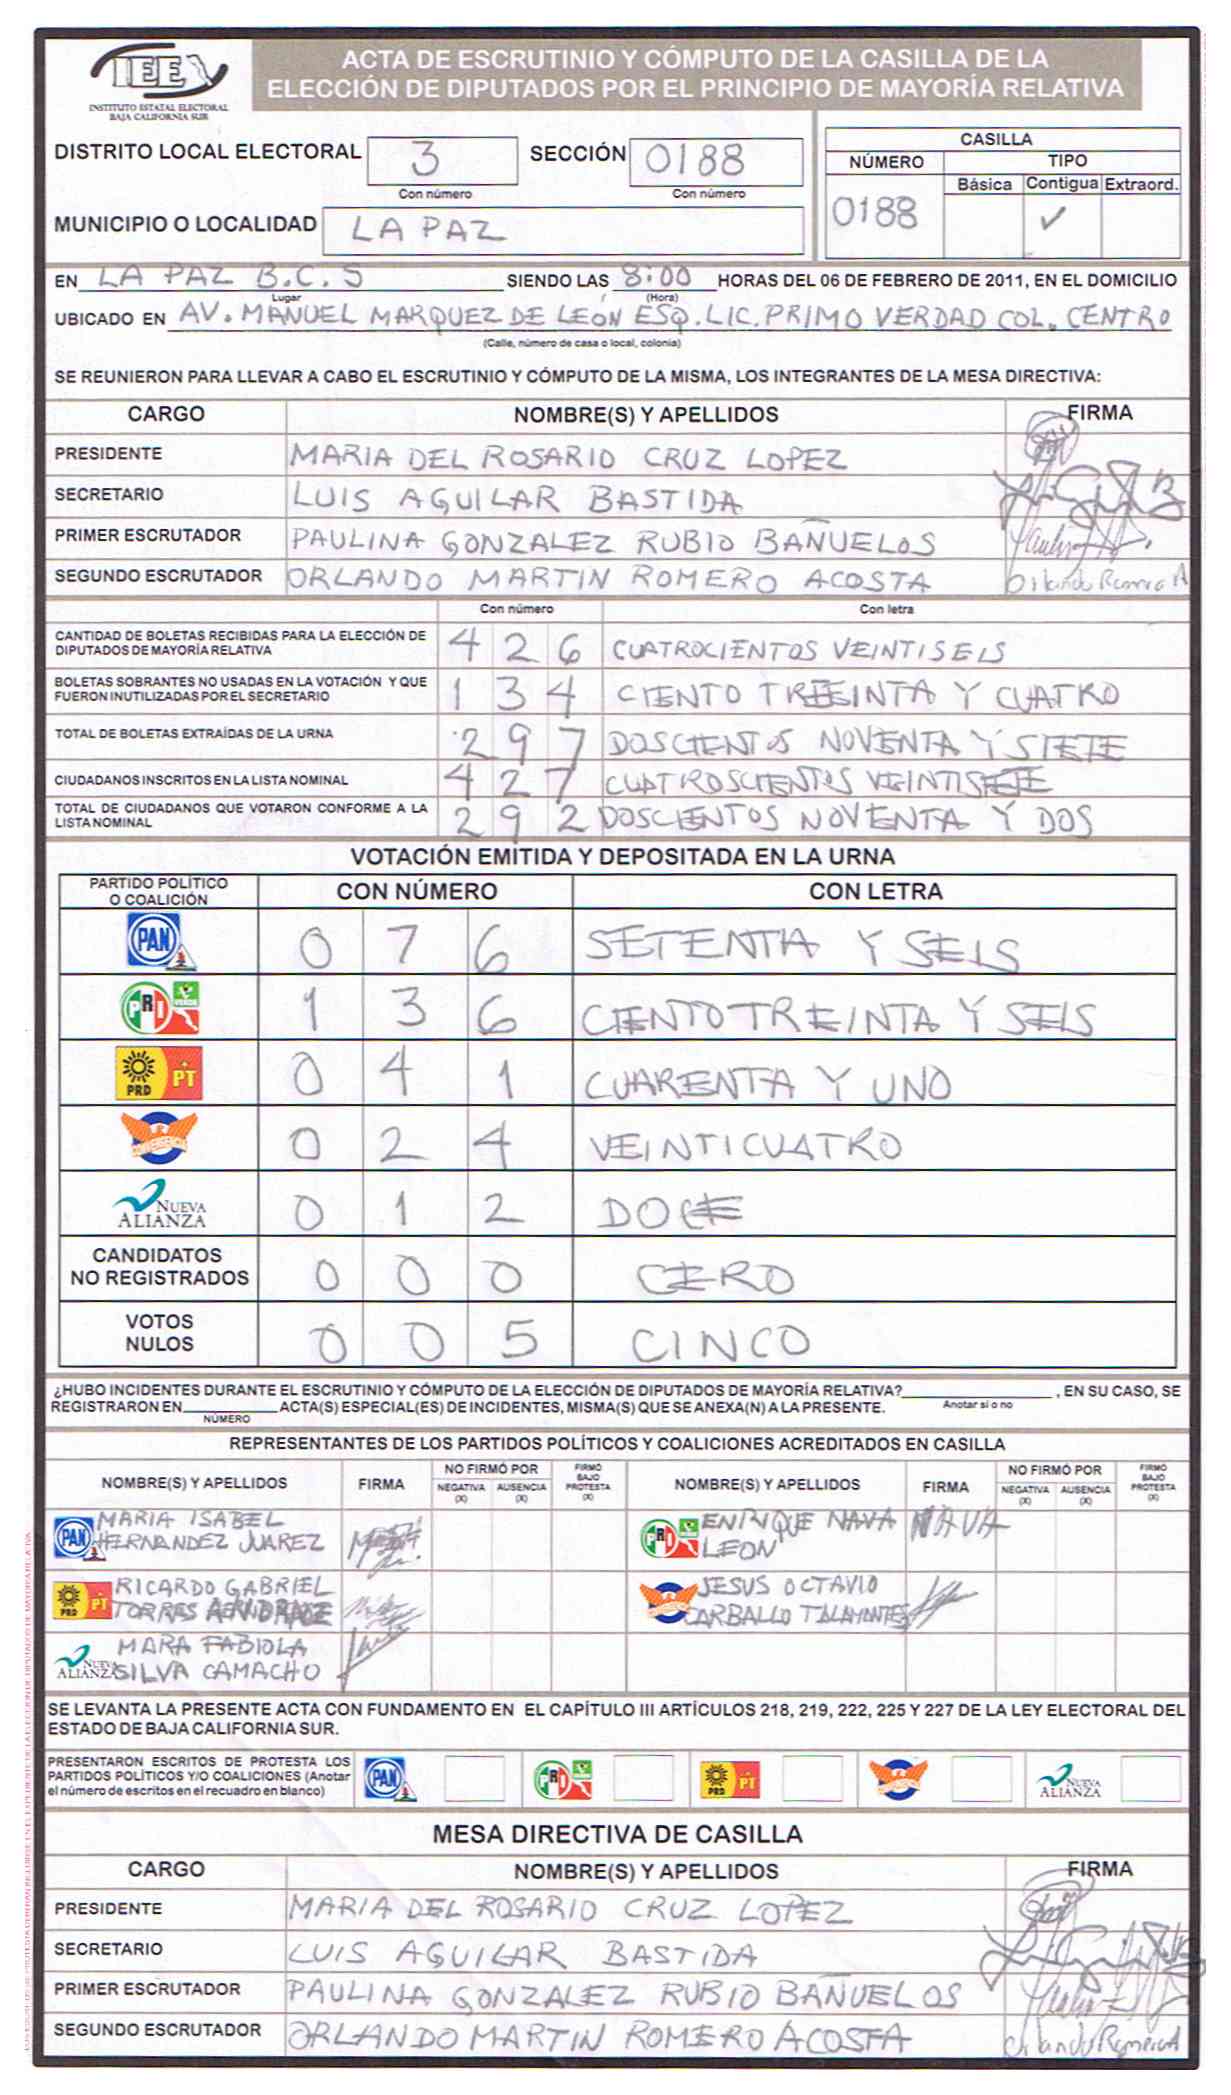 IEE
INSTITUTO ESTATAL ELECTORAL
BAJA CALIFORNIA SUR
ACTA DE ESCRUTINIO Y CÓMPUTO DE LA CASILLA DE LA
ELECCIÓN DE DIPUTADOS POR EL PRINCIPIO DE MAYORÍA RELATIVA
DISTRITO LOCAL ELECTORAL 3 SECCIÓN 0188
Con número Con número
CASILLA
NÚMERO TIPO
Básica Contigua Extraord.
0188 ✓
MUNICIPIO O LOCALIDAD LA PAZ
EN LA PAZ B.C.S SIENDO LAS 8:00 HORAS DEL 06 DE FEBRERO DE 2011, EN EL DOMICILIO
Lugar (Hora)
UBICADO EN AV. MANUEL MARQUEZ DE LEON ESQ. LIC. PRIMO VERDAD COL. CENTRO
(Calle, número de casa o local, colonia)
SE REUNIERON PARA LLEVAR A CABO EL ESCRUTINIO Y CÓMPUTO DE LA MISMA, LOS INTEGRANTES DE LA MESA DIRECTIVA:
CARGO NOMBRE(S) Y APELLIDOS FIRMA
PRESIDENTE MARIA DEL ROSARIO CRUZ LOPEZ
SECRETARIO LUIS AGUILAR BASTIDA
PRIMER ESCRUTADOR PAULINA GONZALEZ RUBIO BAÑUELOS
SEGUNDO ESCRUTADOR ORLANDO MARTIN ROMERO ACOSTA Orlando Romero A
Con número Con letra
CANTIDAD DE BOLETAS RECIBIDAS PARA LA ELECCIÓN DE
DIPUTADOS DE MAYORÍA RELATIVA 4 2 6 CUATROCIENTOS VEINTISEIS
BOLETAS SOBRANTES NO USADAS EN LA VOTACIÓN Y QUE
FUERON INUTILIZADAS POR EL SECRETARIO 1 3 4 CIENTO TREEINTA Y CUATRO
TOTAL DE BOLETAS EXTRAÍDAS DE LA URNA 2 9 7 DOSCIENTOS NOVENTA Y SIETE
CIUDADANOS INSCRITOS EN LA LISTA NOMINAL 4 2 7 CUATROSCIENTOS VEINTISIETE
TOTAL DE CIUDADANOS QUE VOTARON CONFORME A LA
LISTA NOMINAL 2 9 2 DOSCIENTOS NOVENTA Y DOS
VOTACIÓN EMITIDA Y DEPOSITADA EN LA URNA
PARTIDO POLÍTICO
O COALICIÓN CON NÚMERO CON LETRA
PAN 0 7 6 SETENTA Y SEIS
PRI VERDE 1 3 6 CIENTO TREINTA Y SEIS
PRD PT 0 4 1 CUARENTA Y UNO
0 2 4 VEINTICUATRO
NUEVA
ALIANZA 0 1 2 DOCE
CANDIDATOS
NO REGISTRADOS 0 0 0 CERO
VOTOS
NULOS 0 0 5 CINCO
¿HUBO INCIDENTES DURANTE EL ESCRUTINIO Y CÓMPUTO DE LA ELECCIÓN DE DIPUTADOS DE MAYORÍA RELATIVA?, EN SU CASO, SE
Anotar si o no
REGISTRARON EN ACTA(S) ESPECIAL(ES) DE INCIDENTES, MISMA(S) QUE SE ANEXA(N) A LA PRESENTE.
NÚMERO
REPRESENTANTES DE LOS PARTIDOS POLÍTICOS Y COALICIONES ACREDITADOS EN CASILLA
NOMBRE(S) Y APELLIDOS FIRMA NO FIRMÓ POR NEGATIVA (X) AUSENCIA (X) FIRMÓ BAJO PROTESTA (X) NOMBRE(S) Y APELLIDOS FIRMA NO FIRMÓ POR NEGATIVA (X) AUSENCIA (X) FIRMÓ BAJO PROTESTA (X)
PAN MARIA ISABEL
HERNANDEZ JUAREZ
PRI ENRIQUE NAVA NAVA
LEON
PRD PT RICARDO GABRIEL
TORRES
JESUS OCTAVIO
CARBALLO TALAMANTES
NUEVA ALIANZA MARA FABIOLA
SILVA CAMACHO
SE LEVANTA LA PRESENTE ACTA CON FUNDAMENTO EN EL CAPÍTULO III ARTÍCULOS 218, 219, 222, 225 Y 227 DE LA LEY ELECTORAL DEL
ESTADO DE BAJA CALIFORNIA SUR.
PRESENTARON ESCRITOS DE PROTESTA LOS
PARTIDOS POLÍTICOS Y/O COALICIONES (Anotar
el número de escritos en el recuadro en blanco)
PAN PRI PRD PT NUEVA ALIANZA
MESA DIRECTIVA DE CASILLA
CARGO NOMBRE(S) Y APELLIDOS FIRMA
PRESIDENTE MARIA DEL ROSARIO CRUZ LOPEZ
SECRETARIO LUIS AGUILAR BASTIDA
PRIMER ESCRUTADOR PAULINA GONZALEZ RUBIO BAÑUELOS
SEGUNDO ESCRUTADOR ORLANDO MARTIN ROMERO ACOSTA Orlando Romero A